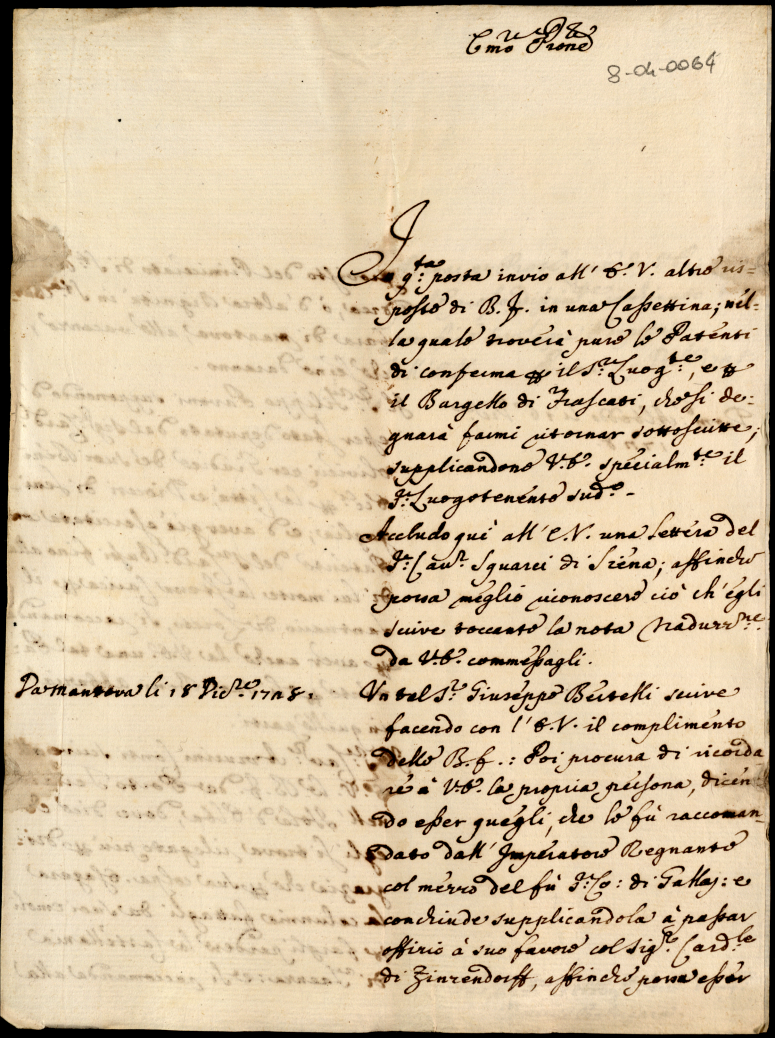 Em.mo Prone
8-04-0064
In q.ta posta invio all' E. V. altre ris=
poste di B. F. in una Cassettina; nel-
la quale troverà pure le Patenti
di conferma il S.r Luog.te, e
il Bargello di Frascati, che si de-
gnarà farmi ritornar sottoscritte;
supplicandone V. E. specialm.te il
S.r Luogotenente sud.o -
Accludo quì all' E. V. una lettera del
S.r Cav.r Squarci di Siena; affinche
possa meglio riconoscere ciò ch' egli
scrive toccante la nota
da V. E. commessagli.
Da Mantova li 18 Dic.re
Un tel S.r Giuseppe Bertelli scrive
facendo con l' E. V. il complimento
delle B. f.: Poi procura di ricorda
re à V. E. la propria persona, dicen
do esser quegli, che le fù raccoman
dato dall' Imperatore Regnante
col mezzo del fù S.r Co: di Gallas: e
conchiude supplicandola à passar
offizio à suo favore col Sig.r Card.le
di Zinzendorff, affinche possa esser